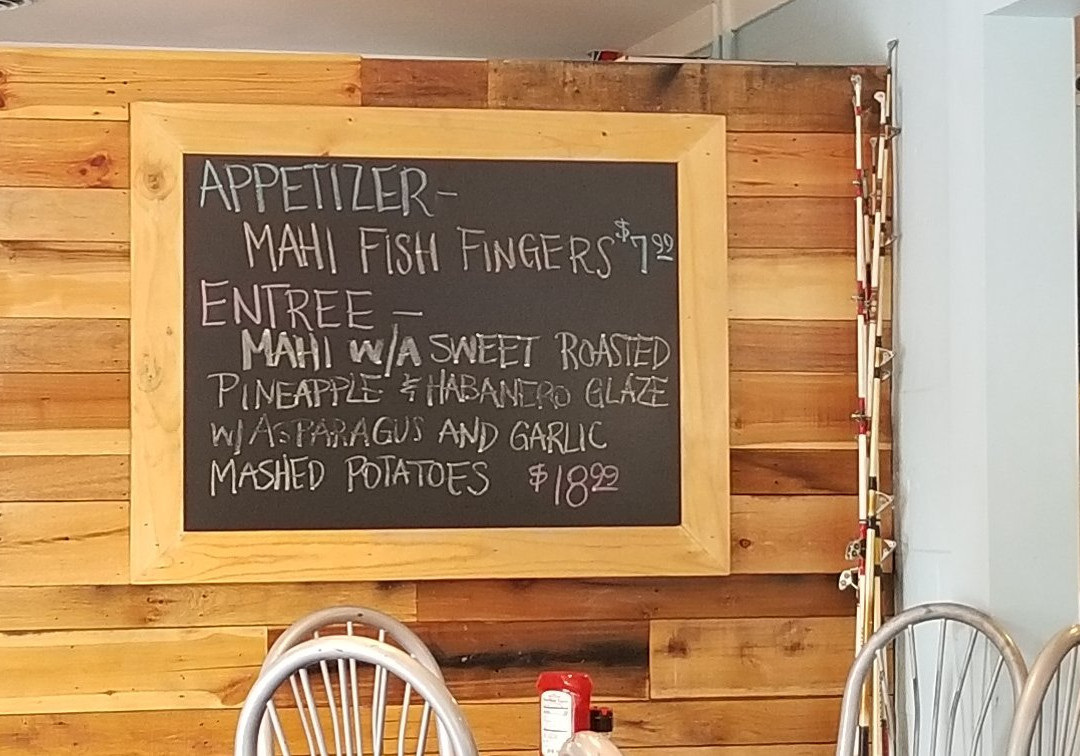 APPETIZER-
MAHI FISH FINGERS $7.99
ENTREE -
MAHI W/A SWEET ROASTED
PINEAPPLE & HABANERO GLAZE
W/ ASPARAGUS AND GARLIC
MASHED POTATOES $18.99